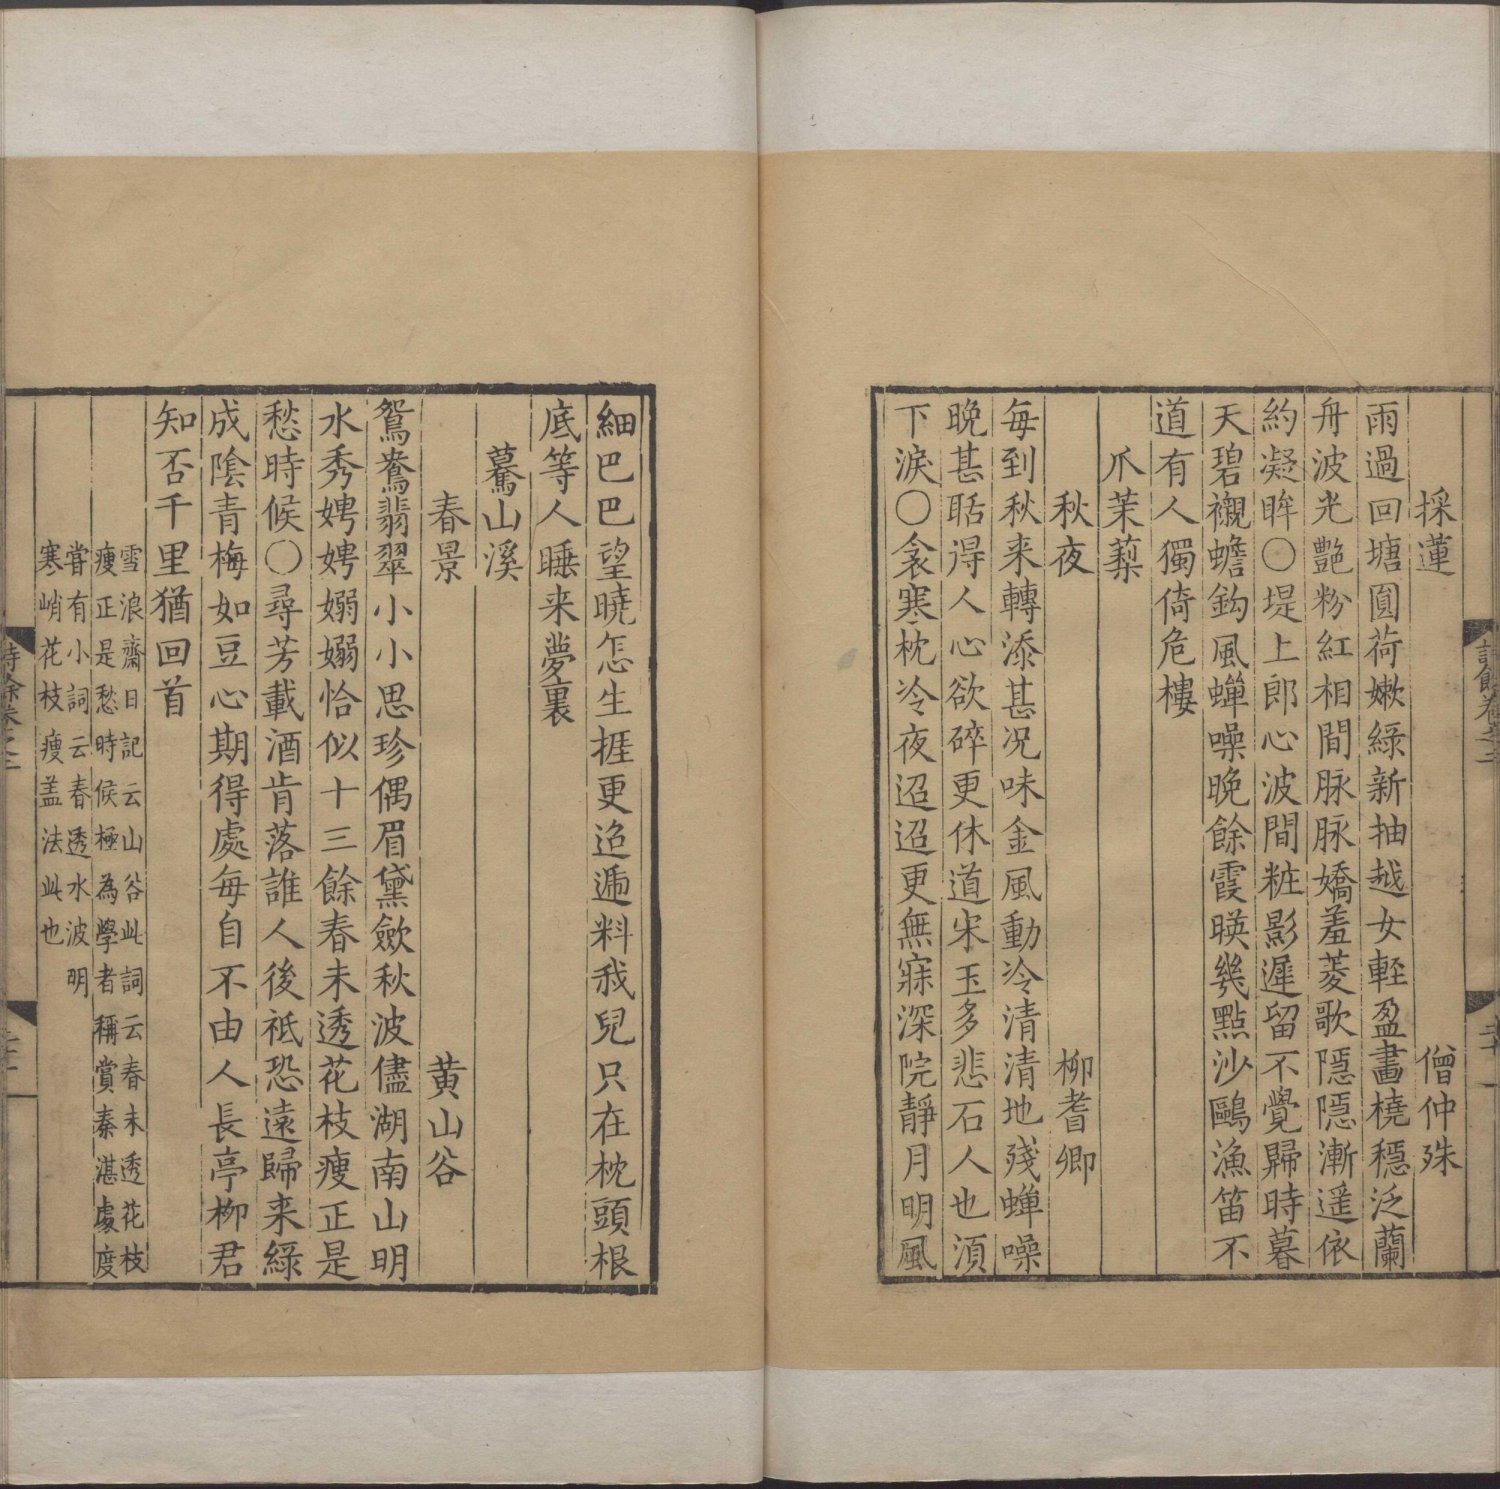 採蓮 僧仲殊
雨過回塘圓荷嫩綠新抽越女輊盈畫橈穩泛蘭
舟波光艷粉紅相間脉脉嬌羞菱歌隱隱漸遥依
約凝眸〇堤上郎心波間粧影遲留不覺歸時暮
天碧襯蟾鈎風蟬噪晚餘霞暎幾點沙鷗漁笛不
道有人獨倚危樓
爪茉莉
秋夜 柳耆卿
每到秋来轉添甚况味金風動冷清清地殘蟬噪
晚甚聒得人心欲碎更休道宋玉多悲石人也湏
下淚〇衾寒枕冷夜迢迢更無寐深院靜月明風
細巴巴望曉怎生捱更迢遞料我兒只在枕頭根
底等人睡来夢裏
驀山溪
春景 黄山谷
鴛鴦翡翠小小思珍偶眉黛歛秋波儘湖南山明
水秀娉娉嫋嫋恰似十三餘春未透花枝瘦正是
愁時候〇尋芳載酒肯落誰人後祗恐遠歸来綠
成隂青梅如豆心期得處每自不由人長亭柳君
知否千里猶回首
雪浪齋日記云山谷此詞云春未透花枝
瘦正是愁時候極為學者稱賞秦湛處度
嘗有小詞云春透水波明
寒峭花枝瘦盖法此也